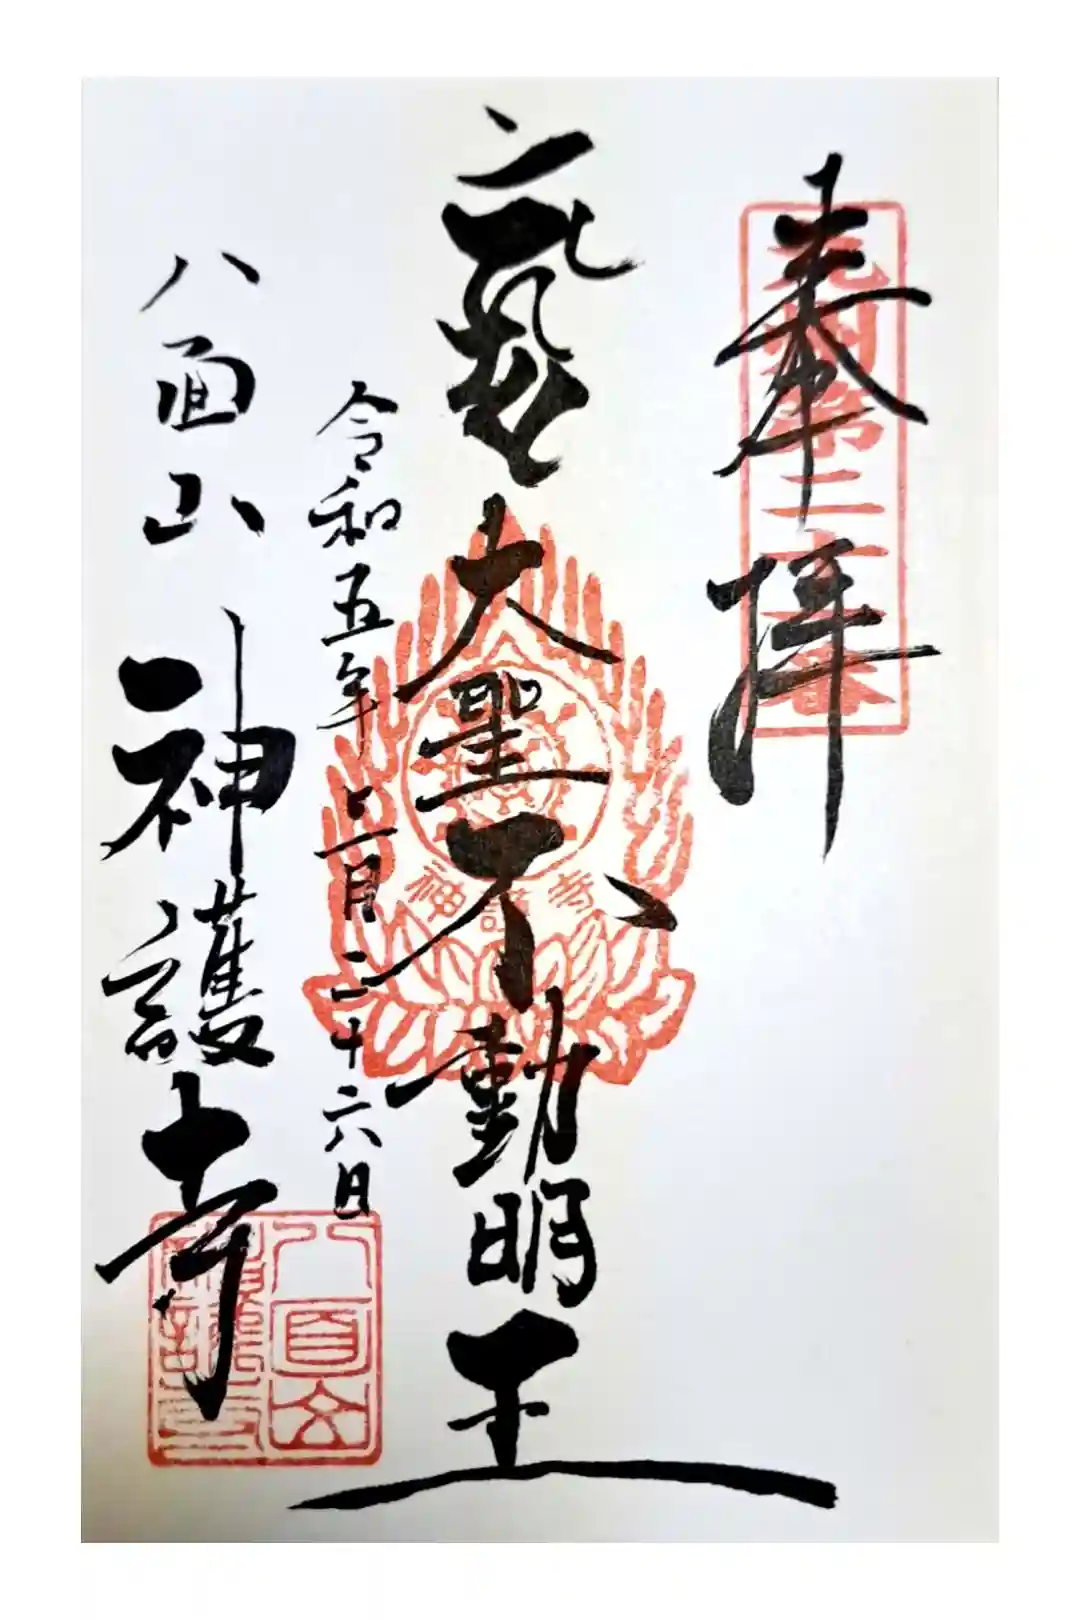 奉拝
九州第二十二番
大聖不動明王
神護寺
令和五年七月二十六日
八面山 神護寺
八面山
神護寺